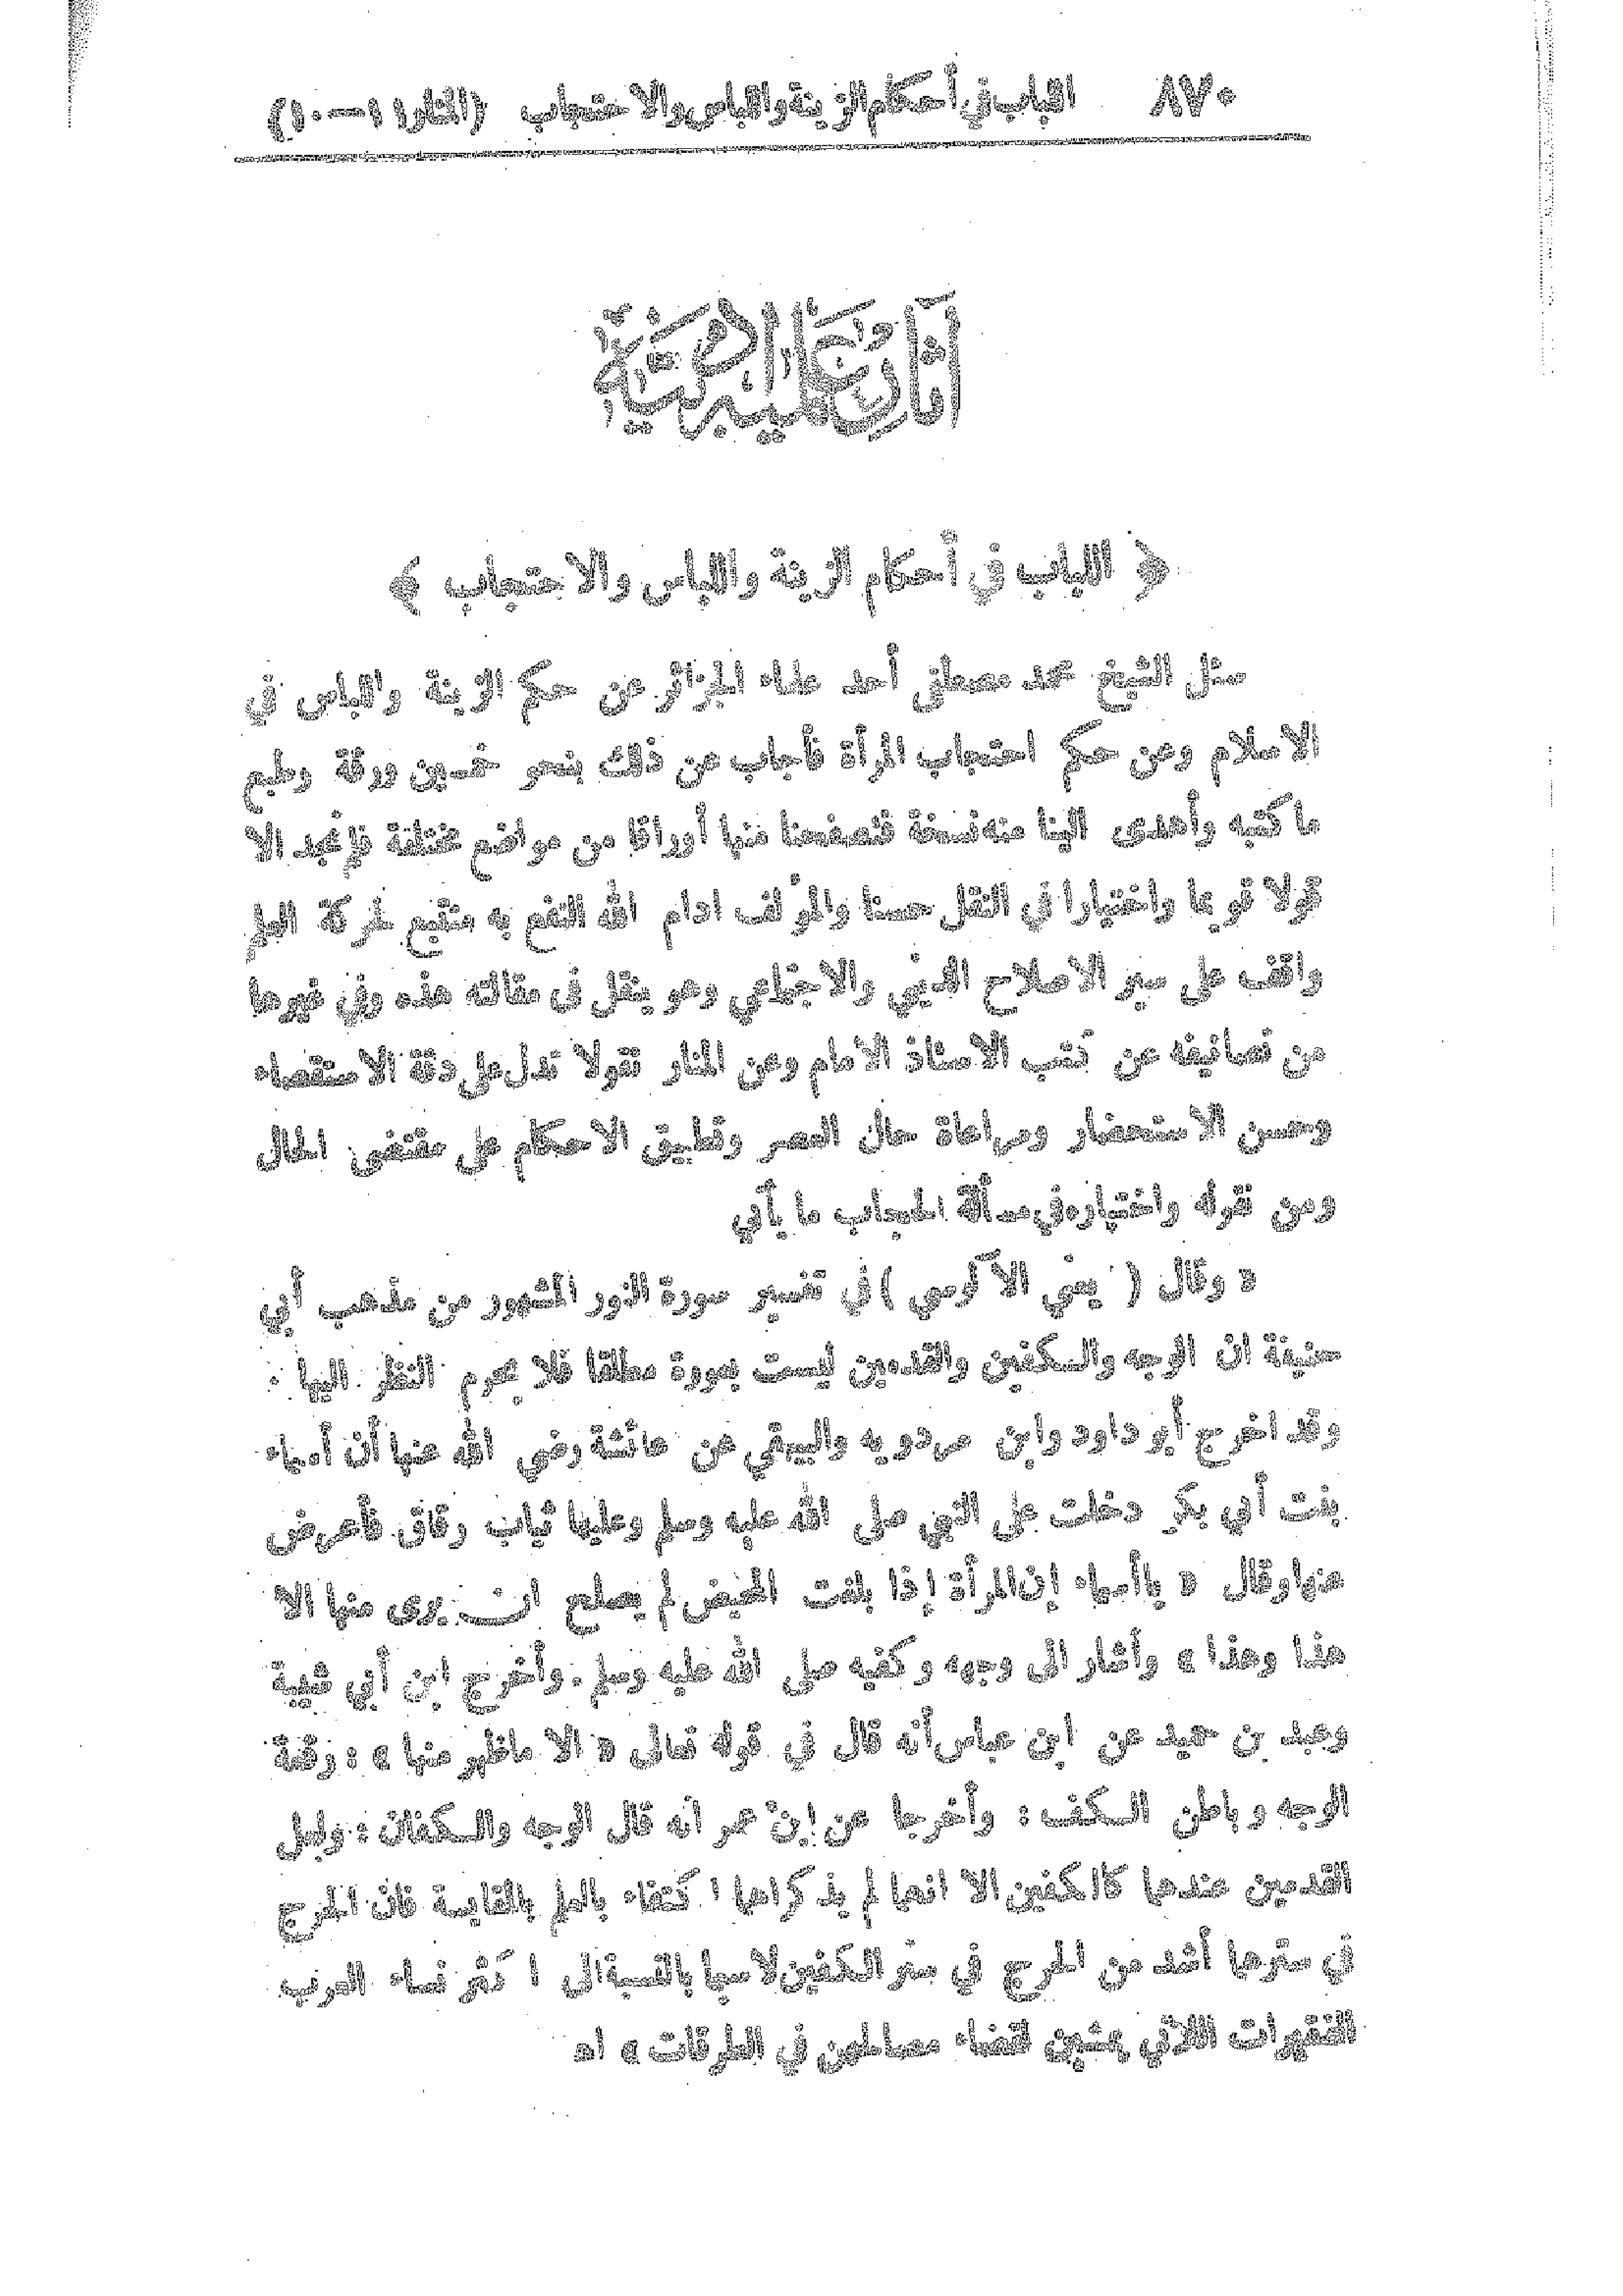 ٨٧٠ اللباب في أحكام الزينة واللباس والاحتجاب (المنار ١١ — ١٠)
آثار علمية أدبية
﴿ اللباب في أحكام الزينة واللباس والاحتجاب ﴾
سئل الشيخ محمد مصطفى أحد علماء الجزائر عن حكم الزينة واللباس في
الاسلام وعن حكم احتجاب المرأة فأجاب عن ذلك بنحو خمسين ورقة وطبع
ما كتبه وأهدى الينا منه نسخة فتصفحنا منها أوراقا من مواضع مختلفة فلم نجد الا
قولا قويما واختيارا في النقل حسنا والمؤلف ادام الله النفع به متتبع لحركة العلم
واقف على سير الاصلاح الديني والاجتماعي وهو ينقل في مقالته هذه وفي غيرها
من تصانيفه عن كتب الاستاذ الامام وعن المنار نقولا تدل على دقة الاستقصاء
وحسن الاستحضار ومراعاة حال العصر وتطبيق الاحكام على مقتضى الحال
ومن نقوله واختياره في مسألة الحجاب ما يأتي
« وقال ( يعني الآلوسي ) في تفسير سورة النور المشهور من مذهب أبي
حنيفة ان الوجه والكفين والقدمين ليست بعورة مطلقا فلا يحرم النظر اليها :
وقد اخرج أبو داود وابن مردويه والبيهقي عن عائشة رضي الله عنها أن أسماء
بنت أبي بكر دخلت على النبي صلى الله عليه وسلم وعليها ثياب رقاق فأعرض
عنها وقال « يا أسماء إن المرأة إذا بلغت المحيض لم يصلح ان يرى منها الا
هذا وهذا » وأشار الى وجهه وكفيه صلى الله عليه وسلم . وأخرج ابن أبي شيبة
وعبد بن حميد عن ابن عباس أنه قال في قوله تعالى « الا ما ظهر منها » : رقعة
الوجه وباطن الكف : وأخرجا عن إبن عمر انه قال الوجه والكفان : ولعل
القدمين عندهما كالكفين الا انهما لم يذكراهما اكتفاء بالعلم بالمقايسة فان الحرج
في سترهما أشد من الحرج في ستر الكفين لا سيما بالنسبة الى اكثر نساء العرب
الفقيرات اللاتي يمشين لقضاء مصالحهن في الطرقات » اه